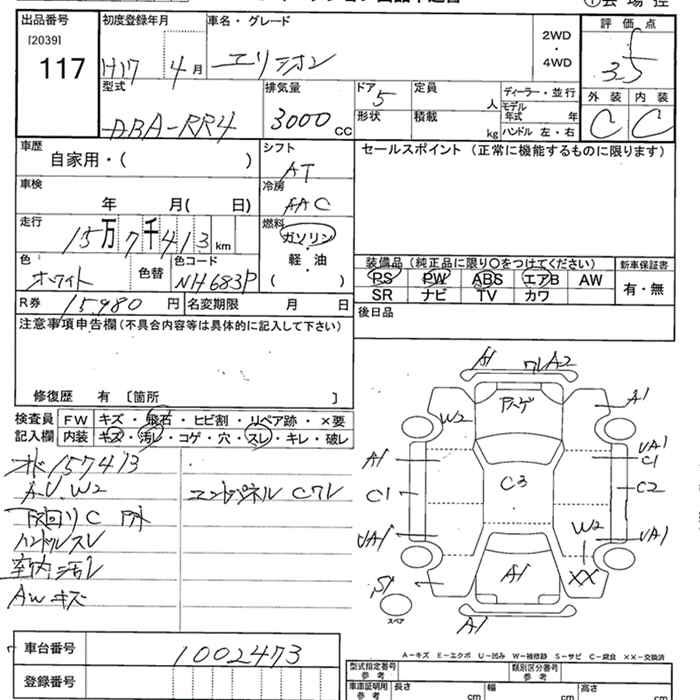 出品番号 初度登録年月 車名・グレード 評価点
[2039]
117
H17年 4月 エリシオン 2WD・4WD 3.5
型式 排気量 ドア 定員 ディーラー・並行 外装 内装
DBA-RR4 3000cc 5 人 モデル年式 年 C C
形状 積載 kg ハンドル 左・右
車歴 シフト セールスポイント(正常に機能するものに限ります)
自家用・( ) AT
車検 冷房
年 月( 日) AAC
走行 燃料
15万7千413km ガソリン
軽・油
( )
色 色替 色コード
ホワイト NH683P
装備品(純正品に限り○をつけてください) 新車保証書
PS PW ABS エアB AW 有・無
SR ナビ TV カワ
R券 15980円 名変期限 月 日 後日品
注意事項申告欄(不具合内容等は具体的に記入して下さい)
修復歴 有 [箇所 ]
検査員 FW キズ・飛石・ヒビ割・リペア跡・×要
記入欄 内装 キズ・汚レ・コゲ・穴・スレ・キレ・破レ
157413
A.U.W2
下回りC
ハンドルスレ
室内汚レ
AWキズ
エンドパネルCワレ
A1 ワレA2
A1
W2
A1 UA1
C1
C1 C3 C2
UA1 W2 UA1
XX
S1 A1
A1
スペア
A-キズ E-エクボ U-凹み W-補修跡 S-サビ C-腐食 XX-交換済
車台番号 1002473
登録番号
型式指定番号 参考 類別区分番号 参考
車庫証明用 参考 長さ cm 幅 cm 高さ cm